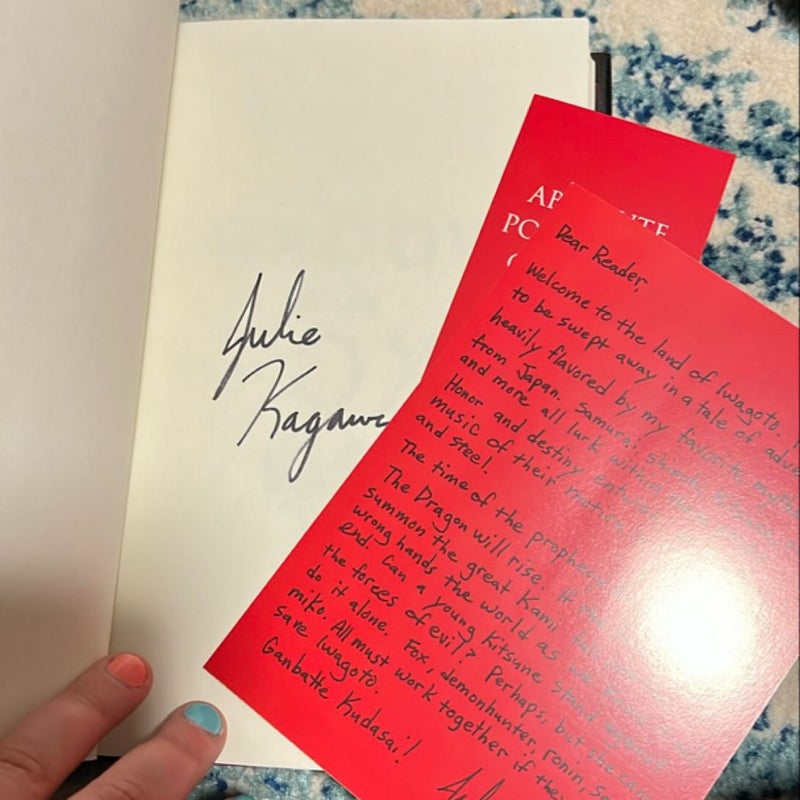 Julie
Kagawa
AP
PO
Dear Reader,
Welcome to the land of Iwagoto.
to be swept away in a tale of adve
heavily flavored by my favorite myth
from Japan. Samurai,
and more all lurk within
Honor and destiny
music of their
and steel.
The time of the prophecy
The Dragon will rise. If the
summon the great Kami
wrong hands the world as we
end. Can a young Kitsune stand against
the forces of evil? Perhaps, but she can
do it alone. Fox, demonhunter, ronin,
miko. All must work together if they
save Iwagoto.
Ganbatte Kudasai!